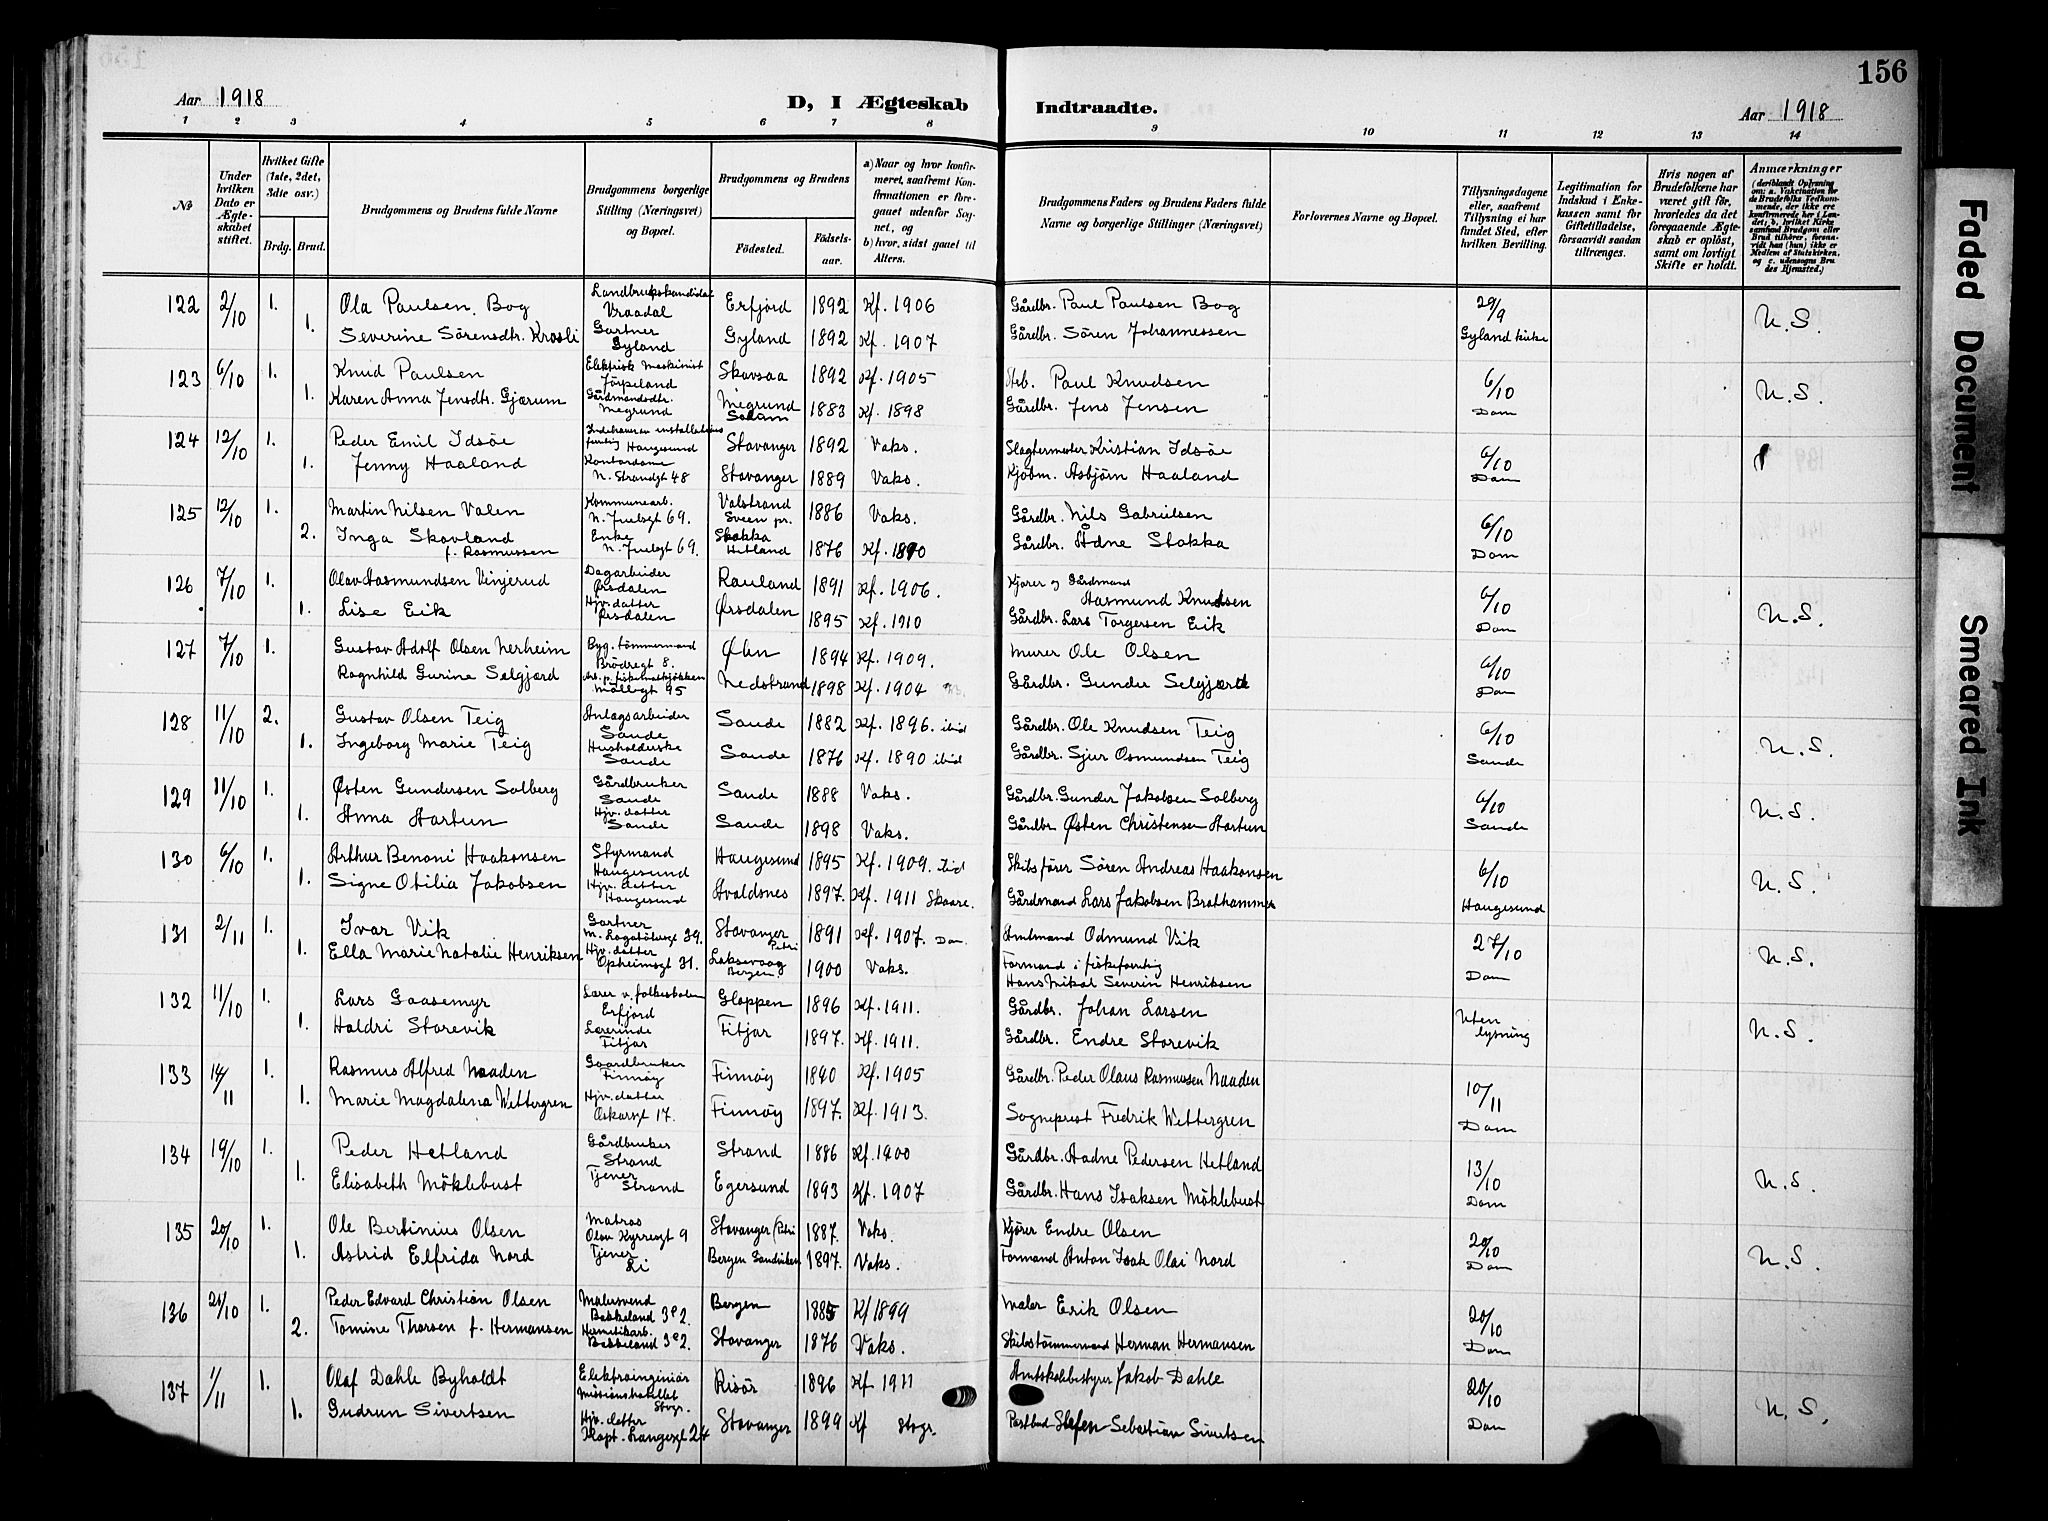 156
Aar 1918
D, I Ægteskab
Indtraadte.
Aar 1918
1 2 3 4 5 6 7 8 9 10 11 12 13 14
No
Under hvilken Dato er Ægteskabet stiftet.
Hvilket Gifte (1ste, 2det, 3die osv.)
Brdg. Brud.
Brudgommens og Brudens fulde Navne
Brudgommens borgerlige Stilling (Næringsvei) og Bopæl.
Brudgommens og Brudens
Fødested. Fødselsaar.
a) Naar og hvor konfirmeret, saafremt Konfirmationen er foregaaet udenfor Sognet, og
b) hvor, sidst gaaet til Alters.
Brudgommens Faders og Brudens Faders fulde Navne og borgerlige Stillinger (Næringsvei)
Forlovernes Navne og Bopæl.
Tillysningsdagene eller, saafremt Tillysning ei har fundet Sted, efter hvilken Bevilling.
Legitimation for Indskud i Enkekassen samt for Giftetilladelse, forsaavidt saadan tiltrænges.
Hvis nogen af Brudefolkene har været gift før, hvorledes da det foregaaende Ægteskab er opløst, samt om lovligt Skifte er holdt.
Anmærkninger
122 2/10 1. Ola Paulsen Bog Landbrukskandidat Vraadal Erfjord 1892 Kf. 1906 Gårdbr. Paul Paulsen Bog 29/9 N.S.
1. Severine Sörensdtr. Krosli Gartner Gyland Gyland 1892 Kf. 1907 Gårdbr. Sören Johannessen Gyland kirke
123 6/10 1. Knud Paulsen Elektrisk Maskinist Jörpeland Skavsaa 1892 Kf. 1905 Paul Knudsen 6/10 N.S.
1. Karen Anna Jensdtr. Gjærum Gårdmandsdtr. Megrund Megrund 1883 Kf. 1898 Gårdbr. Jens Jensen Dom
124 12/10 1. Peder Emil Idsöe Haugesund Stavanger 1892 Vaks. Slagtermester Kristian Idsöe 6/10
1. Jenny Haaland Kontordame N. Strandgt 48 Stavanger 1889 Vaks. Kjöbm. Asbjörn Haaland Dom
125 12/10 1. Martin Nilsen Valen Kommunearb. N. Juelsgt 69. Valstrand Sveen pr. 1886 Vaks. Gårdbr. Nils Gabrielsen 6/10
2. Inga Skavland f. Rasmussen Enke N. Juelsgt 69. Stokka Hetland 1876 Kf. 1890 Gårdbr. Ådne Stokka Dom
126 7/10 1. Olav Aasmundsen Vinjerud Dagarbeider Ørsdalen Rauland 1891 Kf. 1906. Kjører og Gårdmand Aasmund Knudsen 6/10 N.S.
1. Lise Eik Hjv. datter Ørsdalen Ørsdalen 1895 Kf. 1910 Gårdbr. Lars Torgersen Eik Dom
127 7/10 1. Gustav Adolf Olsen Nerheim Byg. tømmermand Brödregt 8. Ølen 1894 Kf. 1909. Murer Ole Olsen 6/10
Ragnhild Gurine Selgjord Møllegt 95 Nedstrand 1898 Kf. 1904 Gårdbr. Gunder Selgjord Dom
128 11/10 2. Gustav Olsen Teig Anlagsarbeider Sande Sande 1882 Kf. 1896. ibid Gårdbr. Ole Knudsen Teig 6/10 N.S.
1. Ingeborg Marie Teig Husholderske Sande Sande 1876 Kf. 1890 ibid Gårdbr. Sjur Osmundsen Teig Sande
129 11/10 1. Østen Gundersen Solberg Gårdbruker Sande Sande 1888 Vaks. Gårdbr. Gunder Jakobsen Solberg 6/10 N.S.
1. Anna Hartun Hjv. datter Sande Sande 1898 Vaks. Gårdbr Østen Christensen Hartun Sande
130 6/10 1. Arthur Benoni Haakonsen Styrmand Haugesund Haugesund 1895 Kf. 1909. ibid Skibsfører Sören Andreas Haakonsen 6/10 N.S.
1. Signe Otilia Jakobsen Hjv. datter Haugesund Avaldsnes 1897. Kf. 1911 Skaare. Gårdmand Lars Jakobsen Brathammer Haugesund
131 2/11 1. Ivar Vik Gartner 39. Stavanger Petri 1891 Kf. 1907. Dom. Amtmand Odmund Vik 27/10 N.S.
1. Ella Marie Natalie Henriksen Hjv. datter Opheimsgt 31. Laksevaag Bergen. 1900 Vaks. Formand i Hans Nikal Severin Henriksen Dom
132 11/10 1. Lars Gaasemyr Lærer v. folkeskolen Erfjord Gloppen 1896 Kf. 1911. Gårdbr. Johan Larsen Uten lysning N.S.
1. Haldri Storevik Lærerinde Fitjar Fitjar 1897. Kf. 1911. Gårdbr. Endre Storevik
133 14/11 1. Rasmus Alfred Naaden Gaardbruker Finnöy Finnöy 1890 Kf. 1905 Gårdbr. Peder Olaus Rasmussen Naaden 10/11
1. Marie Magdalena Wettergren Hjv. datter Oskarsgt 17. Finnöy 1897. Kf. 1913. Sogneprest Fredrik Wettergren Dom
134 19/10 1. Peder Hetland Gårdbruker Strand Strand 1886 Kf. 1900 Gårdbr. Aadne Pedersen Hetland 13/10 N.S.
1. Elisabeth Möklebust Tjener Strand Egersund 1893 Kf. 1907 Gårdbr. Hans Isaksen Möklebust Dom
135 20/10 1. Ole Bertinius Olsen Matros Olav Kyrresgt 9 Stavanger (Petri 1887. Vaks. Kjører Endre Olsen 20/10 N.S.
1. Astrid Elfrida Nord Tjener Li Bergen Sandviken 1897. Vaks. Formand Anton Isak Olai Nord Dom
136 26/10 1. Peder Edvard Christian Olsen Malersvend Bakkeland 3e 2. Bergen 1885 Kf 1899 Maler Erik Olsen 20/10
2. Tomine Thorsen f. Hermansen Hermetikarb. Bakkeland 3e 2. Stavanger 1876 Vaks. Skibstömmermand Herman Hermansen Dom
137 1/11 1. Olaf Dahle Byholdt Elektroingeniör Missionshotellet Stvgr. Risör 1896 Kf 1911 Amtskolebestyrer Jakob Dahle 20/10 N.S.
1. Gudrun Sivertsen Hjv. datter Kapt. Langesgt 24 Stavanger 1899 Kf Stvgr. Postbud Stefen Sebastian Sivertsen Dom
Faded Document
Smeared Ink